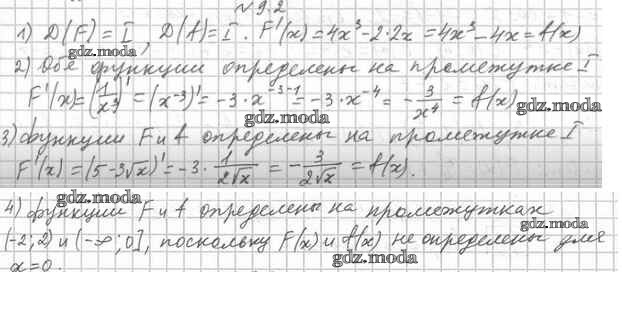 №9.2
1) D(F) = I, D(f) = I. F'(x) = 4x³ - 2·2x = 4x³ - 4x = f(x)
gdz.moda
2) Обе функции определены на промежутке I
F'(x) = (1/x³)' = (x⁻³)' = -3·x⁻³⁻¹ = -3·x⁻⁴ = -3/x⁴ = f(x)
gdz.moda gdz.moda
3) функции F и f определены на промежутке I
F'(x) = (5-3√x)' = -3·1/(2√x) = -3/(2√x) = f(x).
gdz.moda gdz.moda
4) функции F и f определены на промежутках
gdz.moda
(-2;2) и (-∞;0], поскольку F(x) и f(x) не определены для
gdz.moda
x=0.
gdz.moda